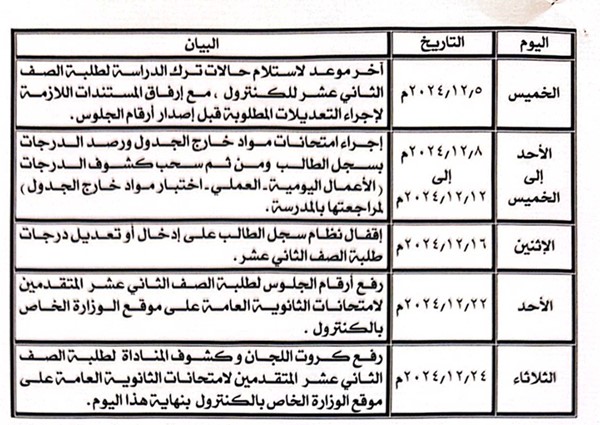 اليوم التاريخ البيان
الخميس ٢٠٢٤/١٢/٥م آخر موعد لاستلام حالات ترك الدراسة لطلبة الصف
الثاني عشر للكنترول ، مع إرفاق المستندات اللازمة
لإجراء التعديلات المطلوبة قبل إصدار أرقام الجلوس.
الأحد ٢٠٢٤/١٢/٨م إجراء امتحانات مواد خارج الجدول ورصد الدرجات
إلى إلى بسجل الطالب ومن ثم سحب كشوف الدرجات
الخميس ٢٠٢٤/١٢/١٢م (الأعمال اليومية-العملي-اختبار مواد خارج الجدول)
لمراجعتها بالمدرسة.
الإثنين ٢٠٢٤/١٢/١٦م إقفال نظام سجل الطالب على إدخال أو تعديل درجات
طلبة الصف الثاني عشر.
الأحد ٢٠٢٤/١٢/٢٢م رفع أرقام الجلوس لطلبة الصف الثاني عشر المتقدمين
لامتحانات الثانوية العامة على موقع الوزارة الخاص
بالكنترول .
الثلاثاء ٢٠٢٤/١٢/٢٤م رفع كروت اللجان و كشوف المناداة لطلبة الصف
الثاني عشر المتقدمين لامتحانات الثانوية العامة على
موقع الوزارة الخاص بالكنترول بنهاية هذا اليوم.